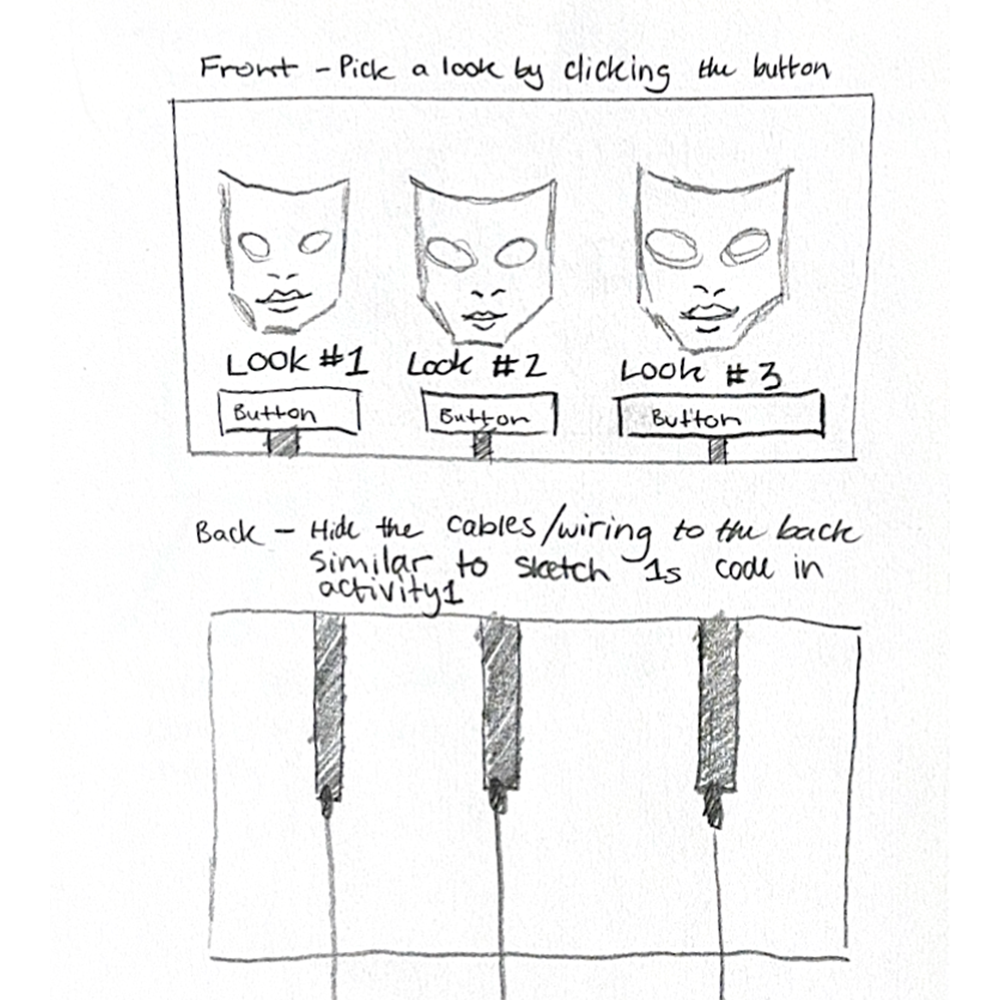 Front - Pick a look by clicking the button
Look #1 Look #2 Look #3
Button Button Button
Back - Hide the cables/wiring to the back
similar to sketch 1s code in
activity1